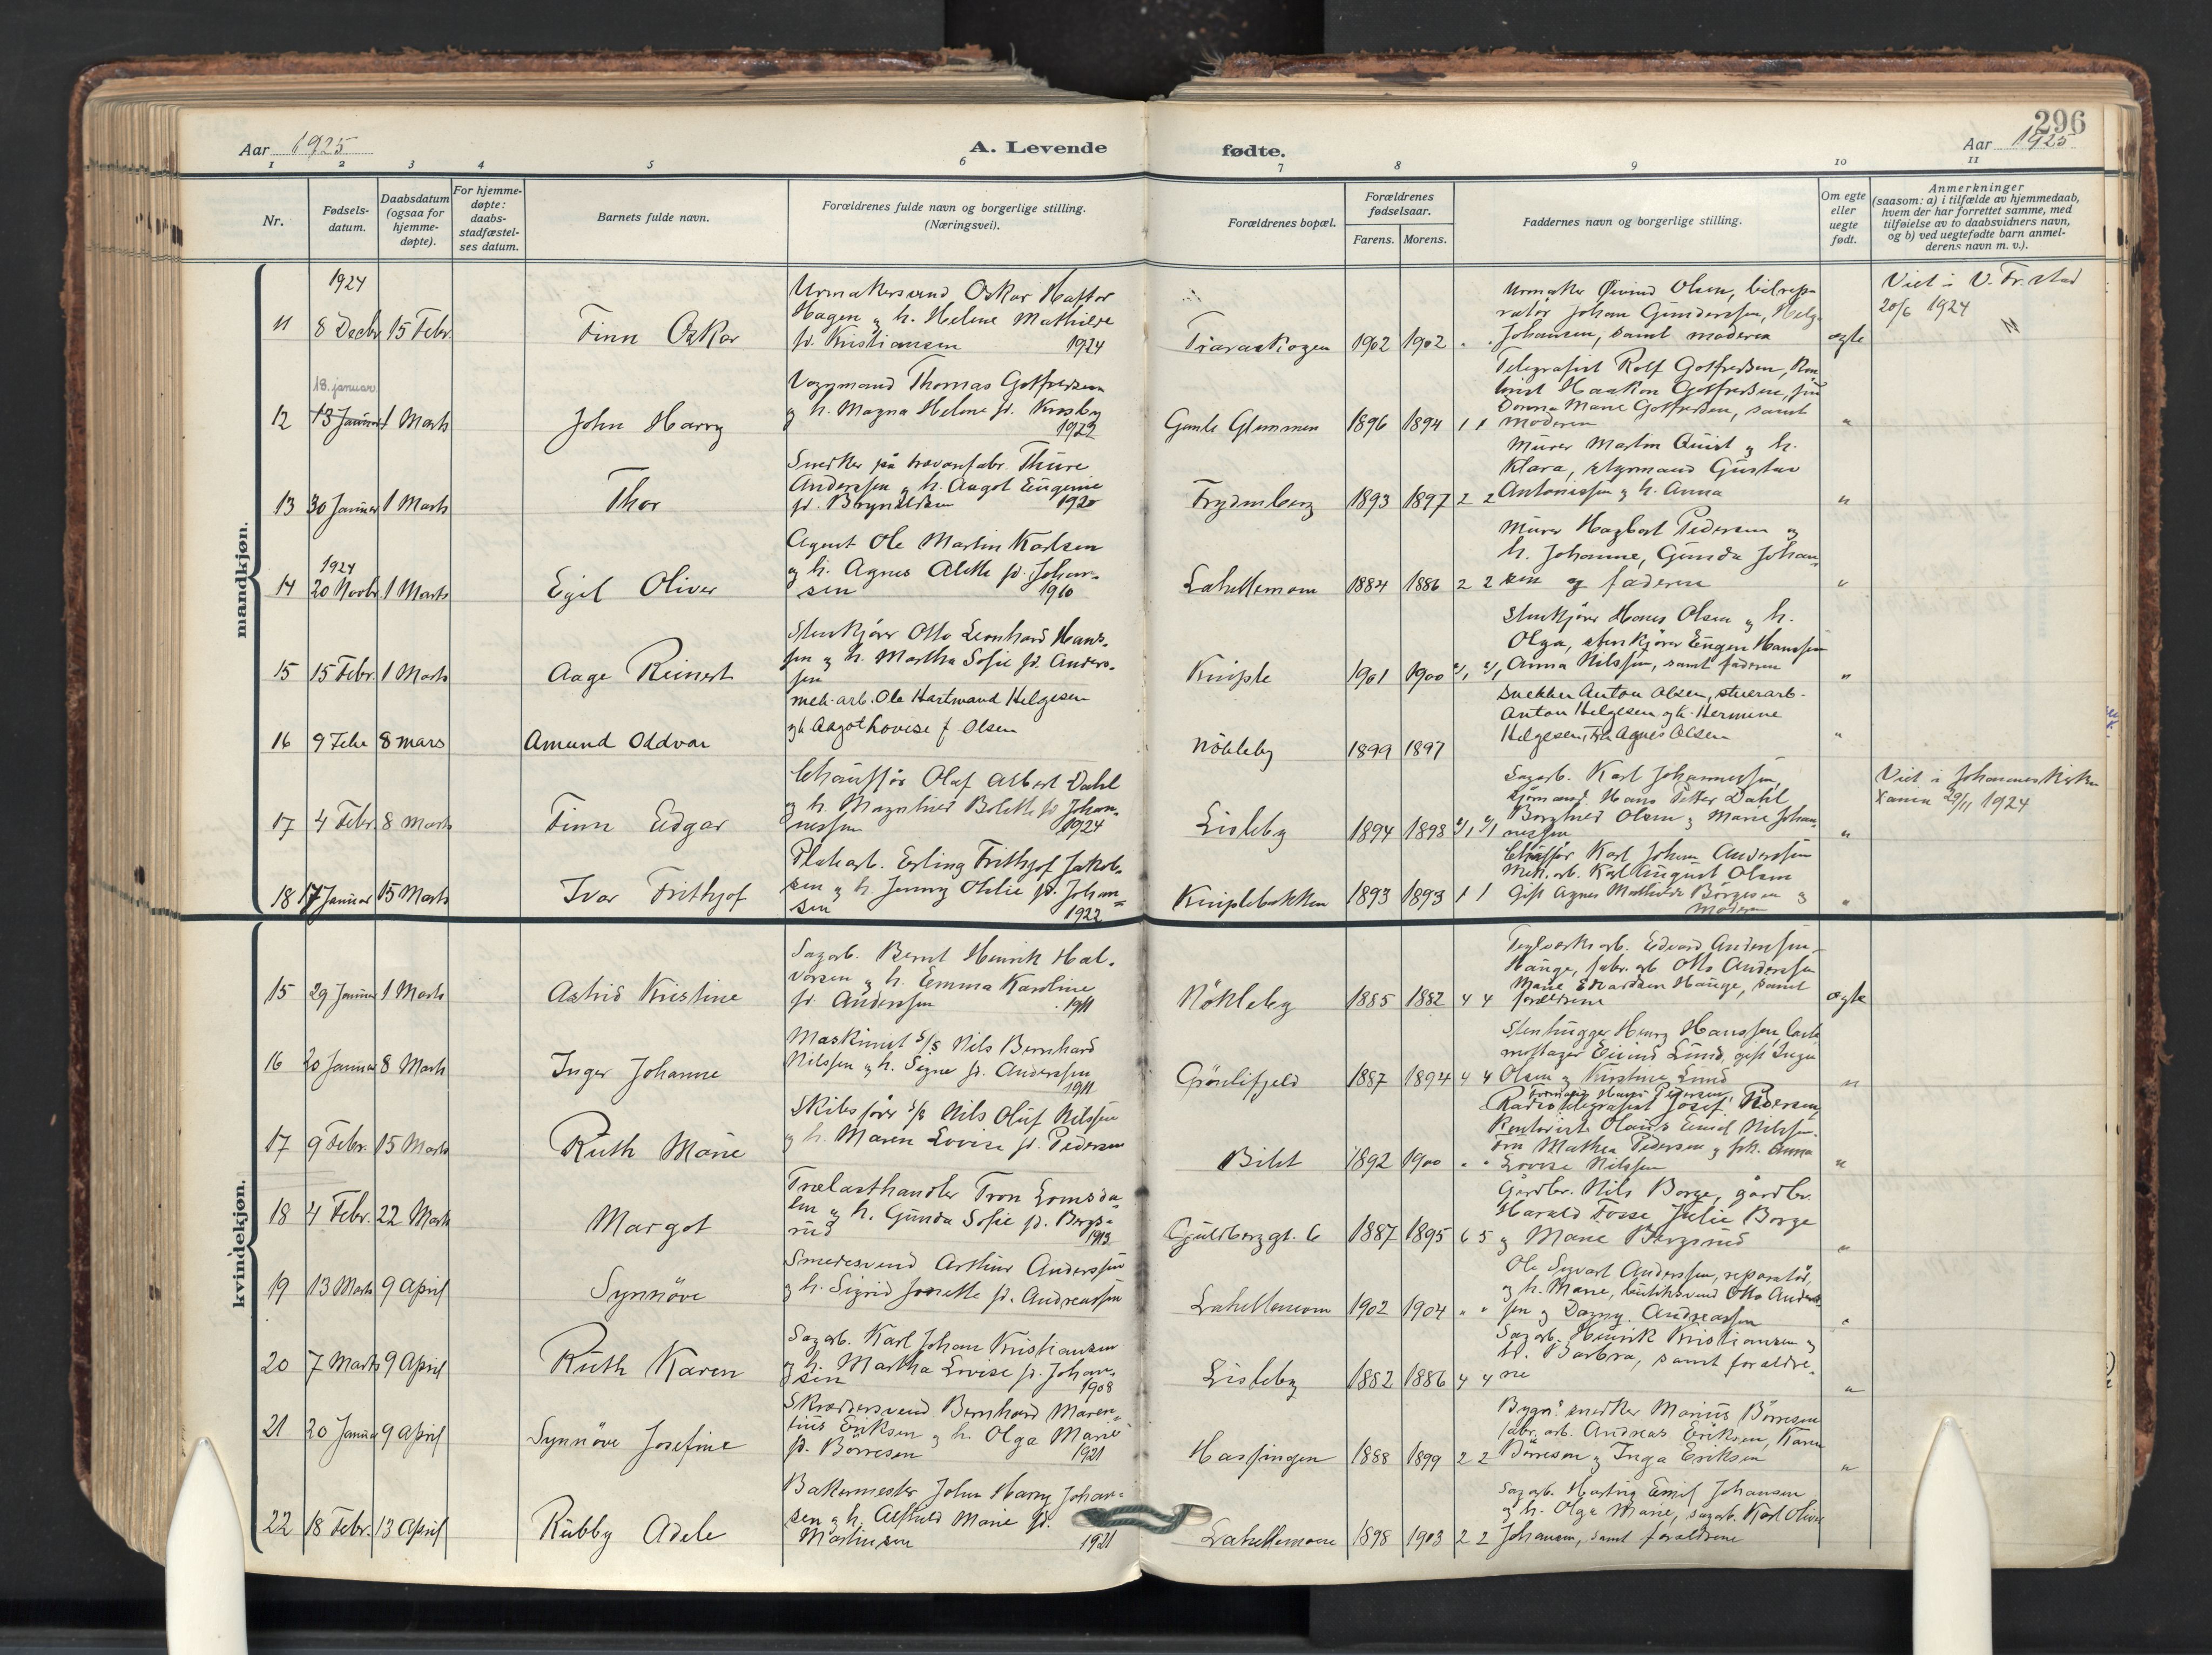 296
Aar 1925
A. Levende
fødte.
Aar 1925
1 2 3 4 5 6 7 8 9 10 11
Nr.
Fødsels-
datum.
Daabsdatum
(ogsaa for
hjemme-
døpte).
For hjemme-
døpte:
daabs-
stadfæstel-
ses datum.
Barnets fulde navn.
Forældrenes fulde navn og borgerlige stilling.
(Næringsvei).
Forældrenes bopæl.
Forældrenes
fødselsaar.
Farens. Morens.
Faddernes navn og borgerlige stilling.
Om egte
eller
uegte
født.
Anmerkninger
(saasom: a) i tilfælde av hjemmedaab,
hvem der har forrettet samme, med
tilføielse av to daabsvidners navn,
og b) ved uegtefødte barn anmel-
derens navn m. v.).
mandkjøn.
1924
11 8 Decbr 15 Febr.
Finn Oskar
Urmakersvend Oskar Haftor
Hagen og h. Helene Mathilde
fd. Kristiansen 1924
Traraskogen 1902 1902
Urmaker Øivind Olsen, bilrepa
ratør Johan Gunderssen, Helga
Johansen, samt moderen
egte
Viet i V. Fr.stad
20/6 1924
18. januar
12 13 Januar 1 Marts
John Harry
Vognmand Thomas Gotfredsen
og h. Magna Helene fd. Krosby
1922
Gamle Glemmen 1896 1894 1 1
Telegrafist Rolf Gotfredsen, Kon
torist Haakon Gotfredsen, fru
Donna Marie Gotfredsen, samt
moderen
"
13 30 Januar 1 Marts
Thor
Snedker på trævarefabr. Thure
Anderssen og h. Aagot Eugenie
fd. Brynildsen 1920
Frydenberg 1893 1897 2 2
Murer Martin Quist og h.
Klara, styrmand Gustav
Antonissen og h. Anna
"
1924
14 20 Novbr. 1 Marts
Egil Oliver
Agent Ole Martin Karlsen
og h. Agnes Alette fd. Johan-
sen 1910
Lahellemoen 1884 1886 2 2
Murer Hagbart Pedersen og
h. Johanne, Gunda Johan
sen og faderen
"
15 15 Febr. 1 Marts
Aage Reinert
Stenkjører Otto Leonhard Hans-
sen og h. Martha Sofie fd. Anders-
sen
Kniple 1901 1900
Stenkjører Hans Olsen og h.
Olga, stenkjører Eugen Hanssen
Anna Nilssen, samt faderen
"
16 9 Febr 8 mars
Amund Oddvar
mek. arb. Ole Hartmand Helgesen
og h Aagot Lovise f Olsen
Nökleby 1899 1897
Snekker Anton Olsen, stuerarb.
Anton Helgesen og h. Hermine
Helgesen, Frk Agnes Olsen
"
17 4 Febr. 8 Marts
Finn Edgar
Chauffør Olaf Albert Dahl
og h. Magnhild Bolette fd Johan-
nessen 1924
Lisleby 1894 1898
Sagarb. Karl Johannessen,
Hans Petter Dahl
Borghild Olsen og Marie Johan
nessen
"
Viet i Johanneskirken
Xania 29/11 1924
18 17 Januar 15 Marts
Ivar Frithjof
Platearb. Erling Frithjof Jakob-
sen og h. Jenny Otilie fd. Johan-
sen 1922
Kniplebakken 1893 1893 1 1
Chauffør Karl Johan Anderssen
Mek. arb. Karl August Olsen
Gift Agnes Mathilde Børgesen og
Moderen
"
kvindekjøn.
15 29 Januar 1 Marts
Astrid Kristine
Sagarb. Bernt Henrik Hal-
vorsen og h. Emma Karoline
fd. Anderssen 1911
Nökleby 1885 1882 4 4
Teglverksarb. Edvard Anderssen
Hauge, fabr. arb Otto Anderssen
Marie Edvardsen Hauge, samt
forældrene
egte
16 20 Januar 8 Marts
Inger Johanne
Maskinist S/S Nils Bernhard
Nilssen og h. Signe fd. Anderssen
1911
Grönlifjeld 1887 1894 4 4
Stenhugger Henry Hanssen, laste
mottager Eivind Lund, gift Inga
Olsen og Kirstine Lund
"
17 9 Febr. 15 Marts
Ruth Marie
Skibsfører S/S Nils Oluf Nilssen
og h. Maren Lovise fd. Pedersen
Bilet 1892 1900
Formand Hans Pedersen,
Radiotelegrafist Josef Pedersen,
Kontorist Olaus Emil Nilssen
Fru Mathea Pedersen og frk. Anna
Lovise Nilssen
"
18 4 Febr. 22 Marts
Margot
Trælasthandler Tron Lomsda
len og h. Gunda Sofie fd. Bergs-
rud 1913
Guldberggt. 6 1887 1895 6 5
Gårdbr. Nils Borge, gårdbr.
Harald Fosse Julie Borge
og Marie Bergsrud
"
19 13 Marts 9 April
Synnöve
Smedesvend Arthur Anderssen
og h. Sigrid Jonette fd. Andreassen
Lahellemoen 1902 1904
Ole Sigvart Anderssen, reparatør,
og h. Marie, butiksvend Otto Anders-
sen og Dagny Andreassen
"
20 7 Marts 9 April
Ruth Karen
Sagarb. Karl Johan Kristiansen
og h. Martha Lovise fd. Johan-
sen 1908
Lisleby 1882 1886 4 4
Sagarb. Henrik Kristiansen og
h. Barbra, samt forældre-
ne
"
21 20 Januar 9 April
Synnöve Josefine
Skræddersvend Bernhard Maren-
tius Eriksen og h. Olga Marie
fd. Börresen 1921
Hassingen 1888 1899 2 2
Bygn.s snedker Marius Börresen
fabr. arb. Andreas Eriksen, Karen
Börresen og Inga Eriksen
"
22 18 Febr. 13 April
Rubby Adele
Bakermester John Harry Johan-
sen og h. Alfhild Marie fd.
Martinsen 1921
Lahellemoen 1898 1903 2 2
Sagarb. Hartvig Emil Johansen
og h. Olga Marie, sagarb. Karl Oliver
Johansen, samt forældrene